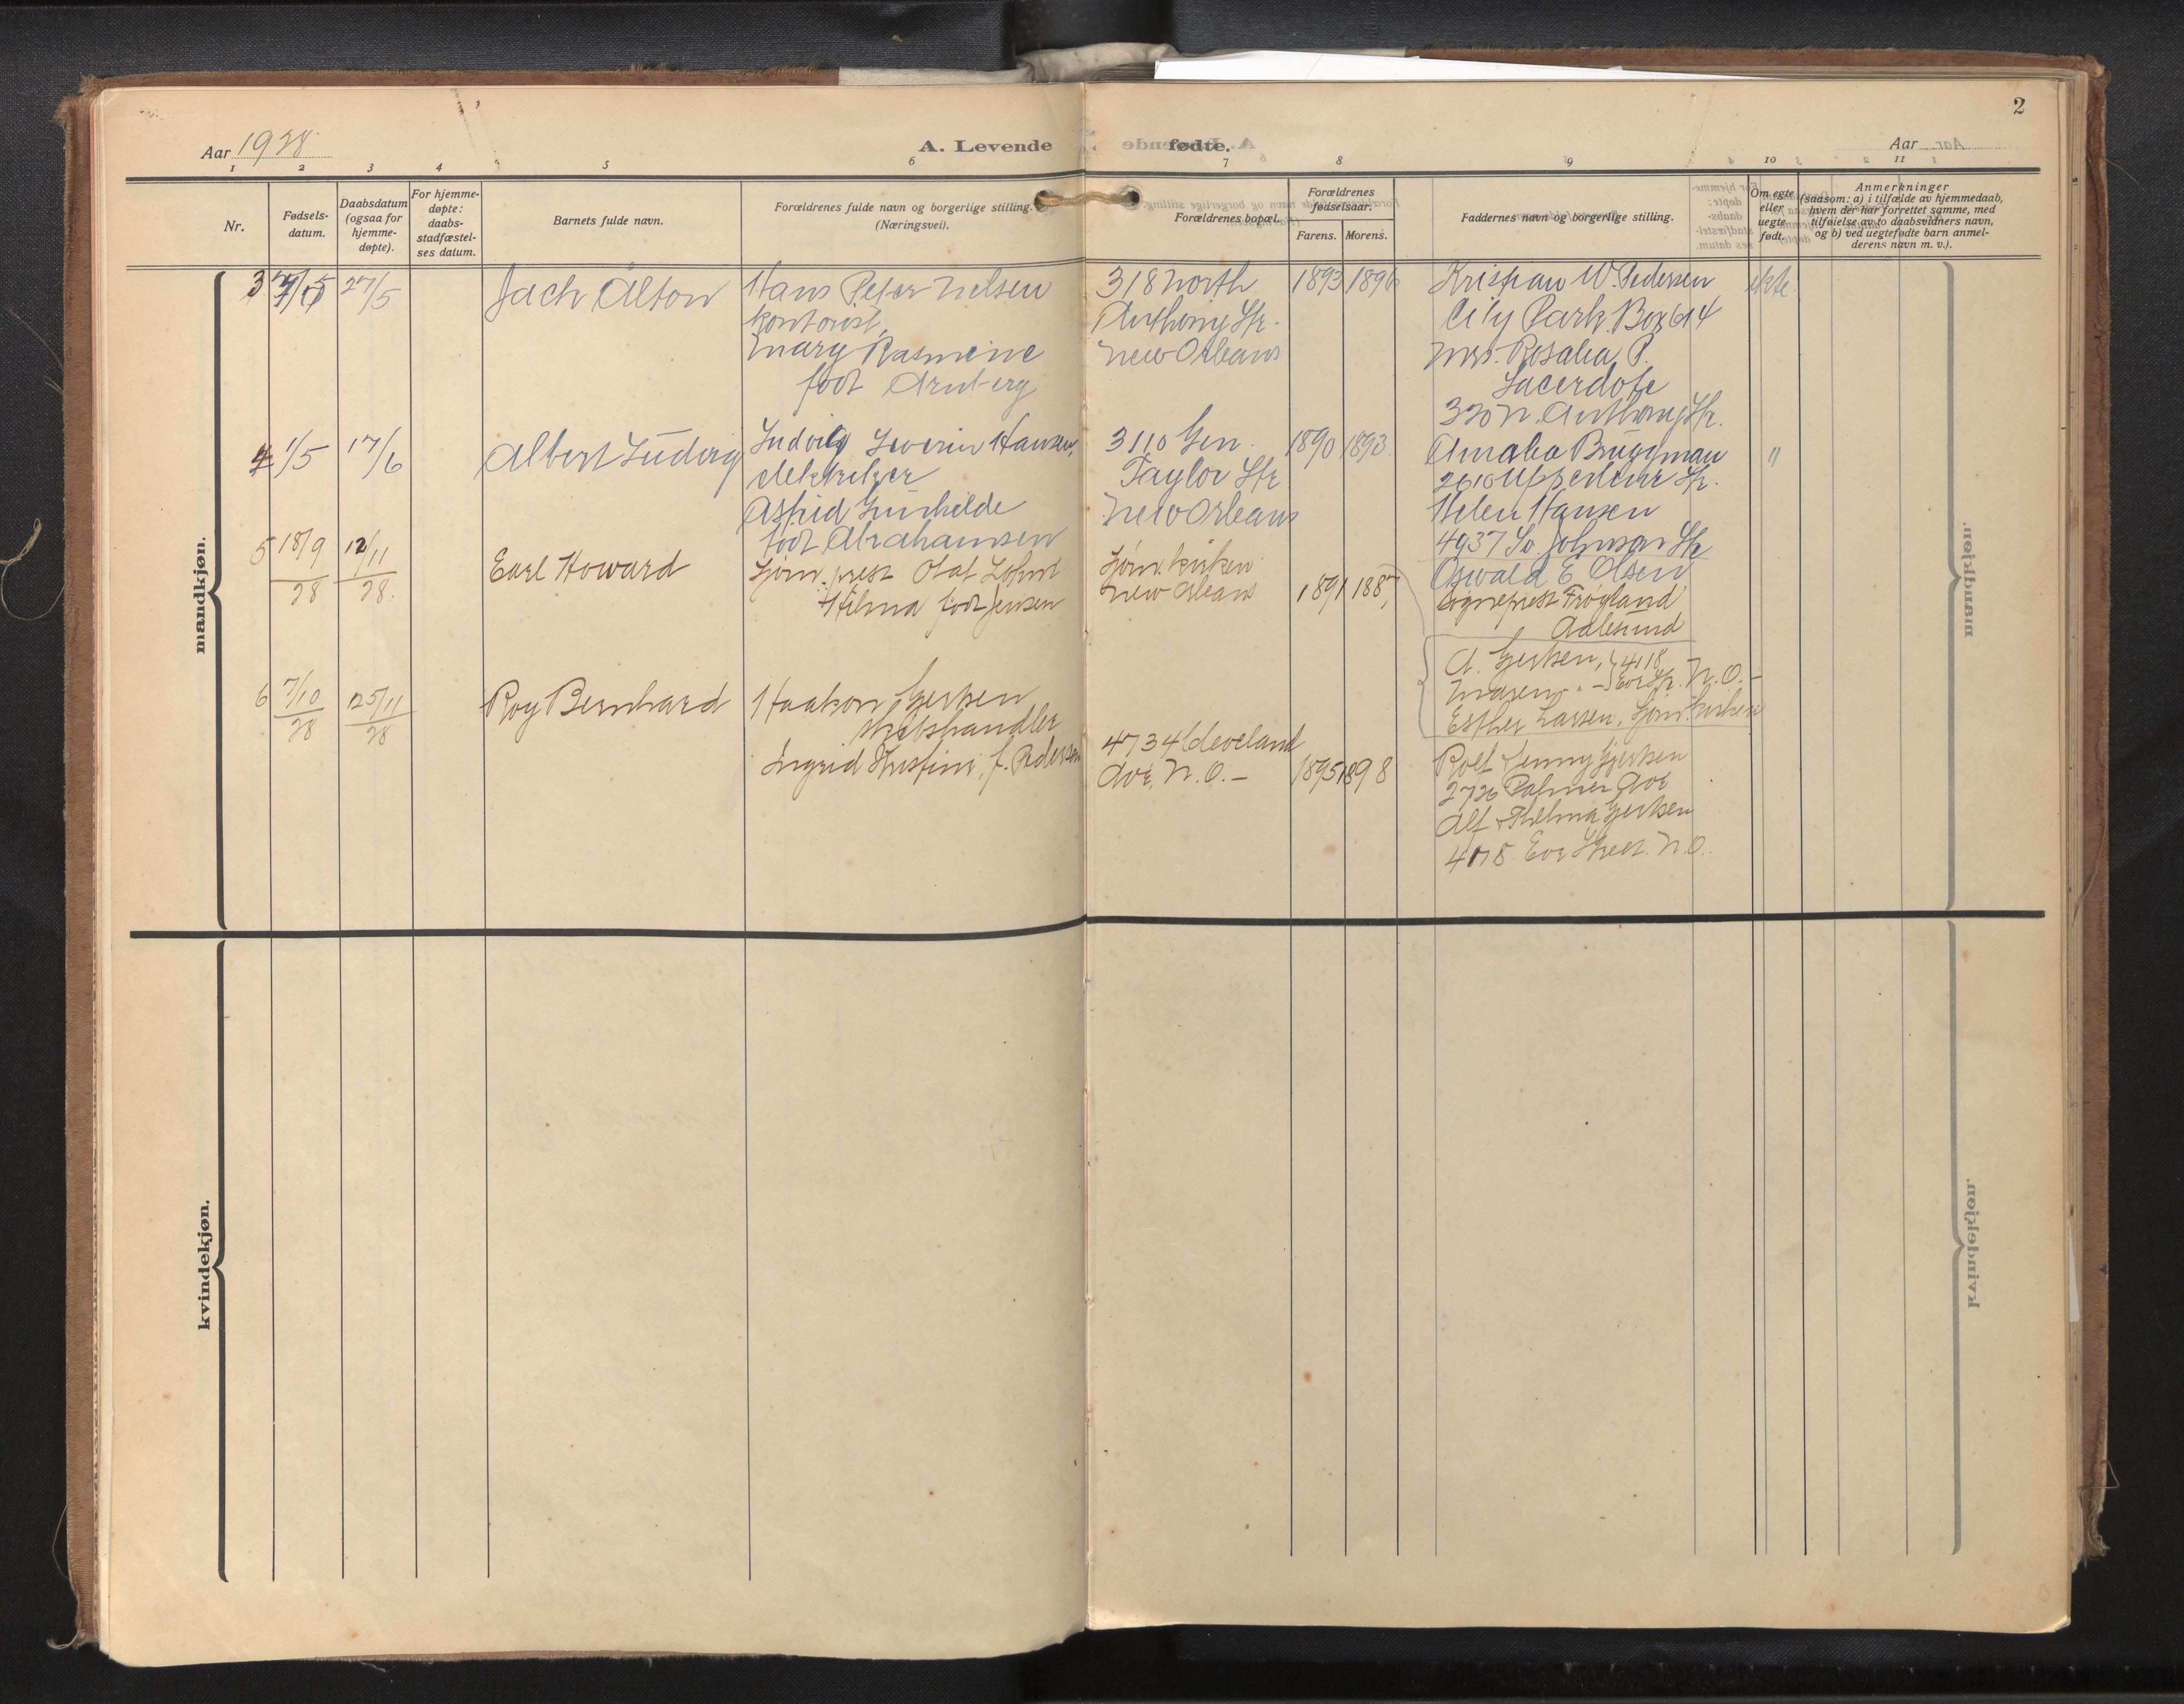 2
Aar 1928
A. Levende fødte.
Aar
1 2 3 4 5 6 7 8 9 10 11
Nr.
Fødsels-
datum.
Daabsdatum
(ogsaa for
hjemme-
døpte).
For hjemme-
døpte:
daabs-
stadfæstel-
ses datum.
Barnets fulde navn.
Forældrenes fulde navn og borgerlige stilling.
(Næringsvei).
Forældrenes bopæl.
Forældrenes
fødselsaar.
Farens. Morens.
Faddernes navn og borgerlige stilling.
Om egte
eller
uegte
født.
Anmerkninger
(saasom: a) i tilfælde av hjemmedaab,
hvem der har forrettet samme, med
tilføielse av to daabsvidners navn,
og b) ved uegtefødte barn anmel-
derens navn m. v.).
mandkjøn.
3 27/5
Jack Alton
Hans Peter Nelsen
kontorist,
Mary Rasmine
født Arnberg
318 North
Anthony Str.
New Orleans
1893 1896
Kristian W. Pedersen
City Park. Box 614
Mrs. Rosalia P.
Sacerdote
320 N. Anthony Str.
ekte
4 1/5 17/6
Albert Ludvig
Ludvig Severin Hansen,
elektriker
Astrid Gunhilde
født Abrahamsen
3110 Gen.
Taylor Str
New Orleans
1890 1893
Amalia Bruggman
2610 Upperline Str.
Helen Hansen
4937 So. Johnson Str
Oswald E. Olsen
"
5 18/9 28 12/11 28.
Earl Howard
Sjøm. prest Olaf
Hilma født Jensen
Sjøm. kirken
New Orleans
1891 1887
Sogneprest Frogland
Aalesund
A. Gjertsen, 4118
Maren " - Eve Str. N. O. -
Esther Larsen, Sjøm. kirken
6 7/10 28 25/11 28
Roy Bernhard
Haakon Gjertsen
skibshandler
Ingrid Kristine, f. Pedersen
4734 Cleveland
Ave, N. O. -
1895 1898
Rolf & Jenny Gjertsen
2726 Palmer Ave
Alf & Thelma Gjertsen
4118 Eve Street. N. O.
kvindekjøn.